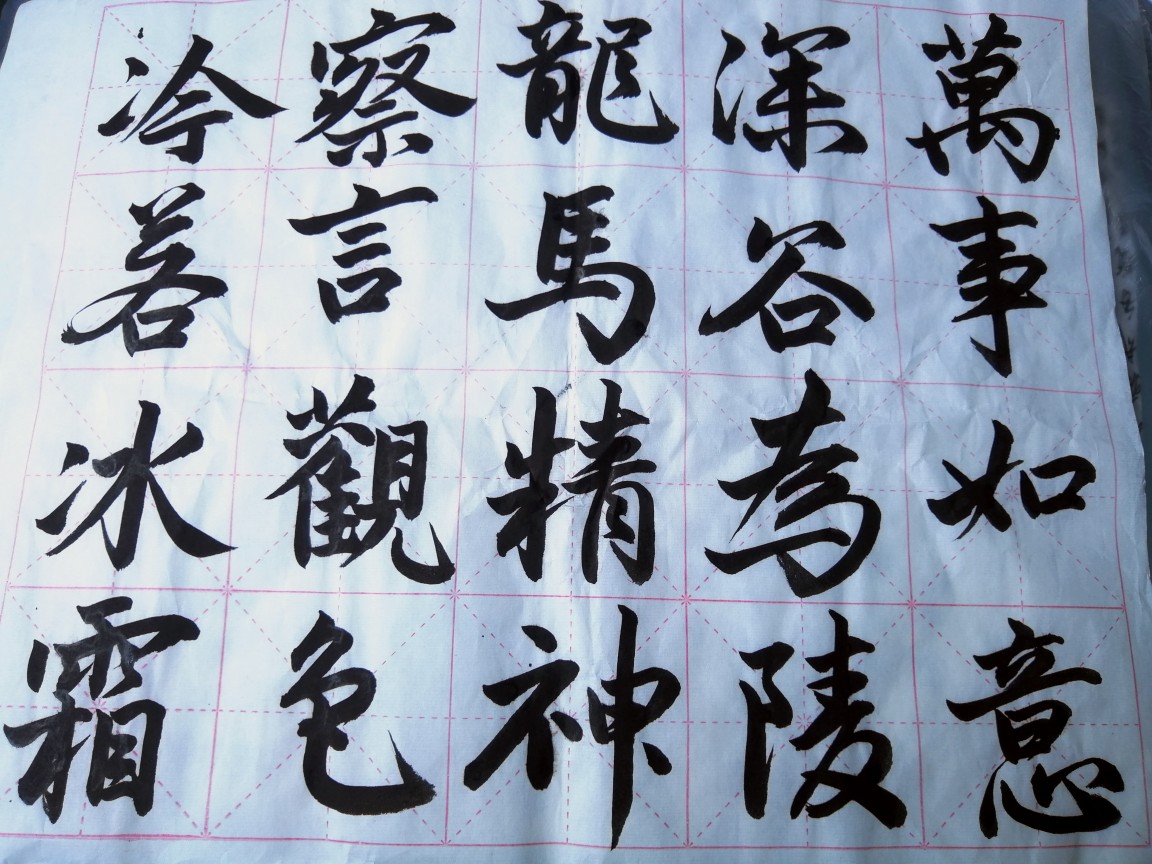 萬事如意
深谷為陵
龍馬精神
察言觀色
冷若冰霜